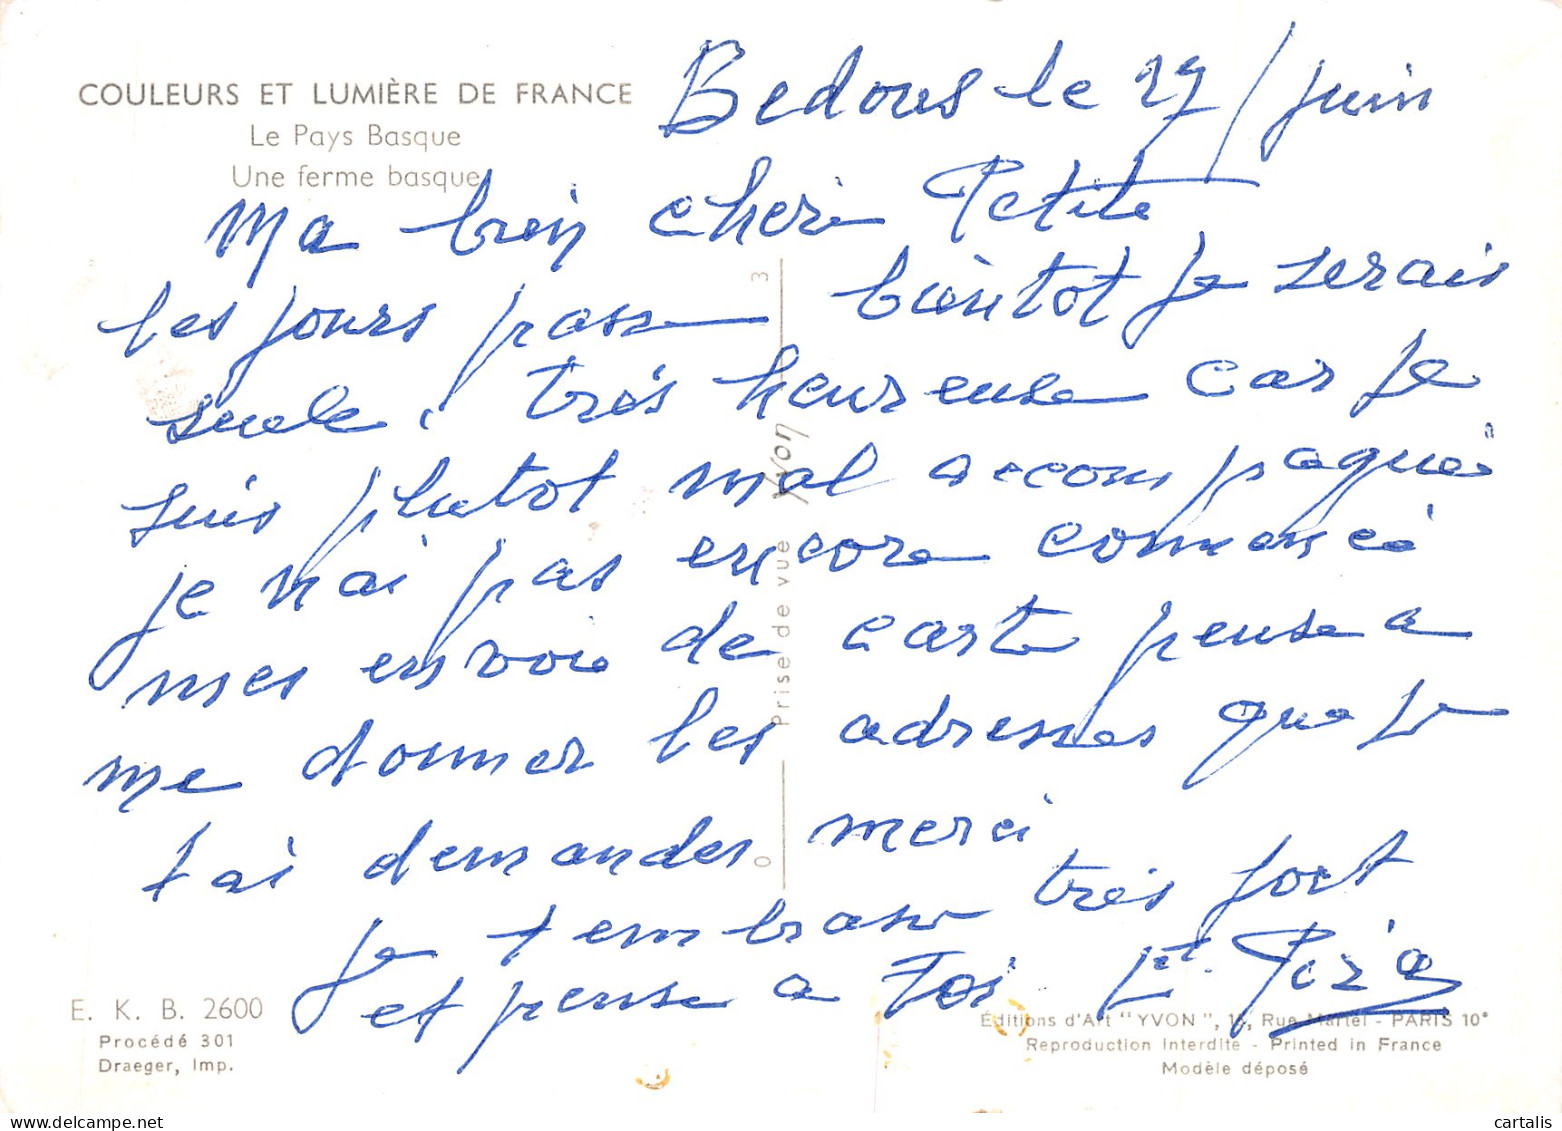 COULEURS ET LUMIÈRE DE FRANCE
Le Pays Basque
Une ferme basque
Bedous le 27 / juin
Ma bien cheri Petite
les jours passe bientot Je serais
seule, très heureuse car Je
suis plutot mal accompagnée
je n'ai pas encore comencé
mes envoie de carte pense a
me donner les adresses que Je
t'ai demander merci
Je t'embrasse très fort
et pense a Toi
3
Prise de vue Yvon
0
E. K. B. 2600
Procédé 301
Draeger, Imp.
Éditions d'Art "YVON", Rue Martel - PARIS 10°
Reproduction Interdite - Printed in France
Modèle déposé
cartalis